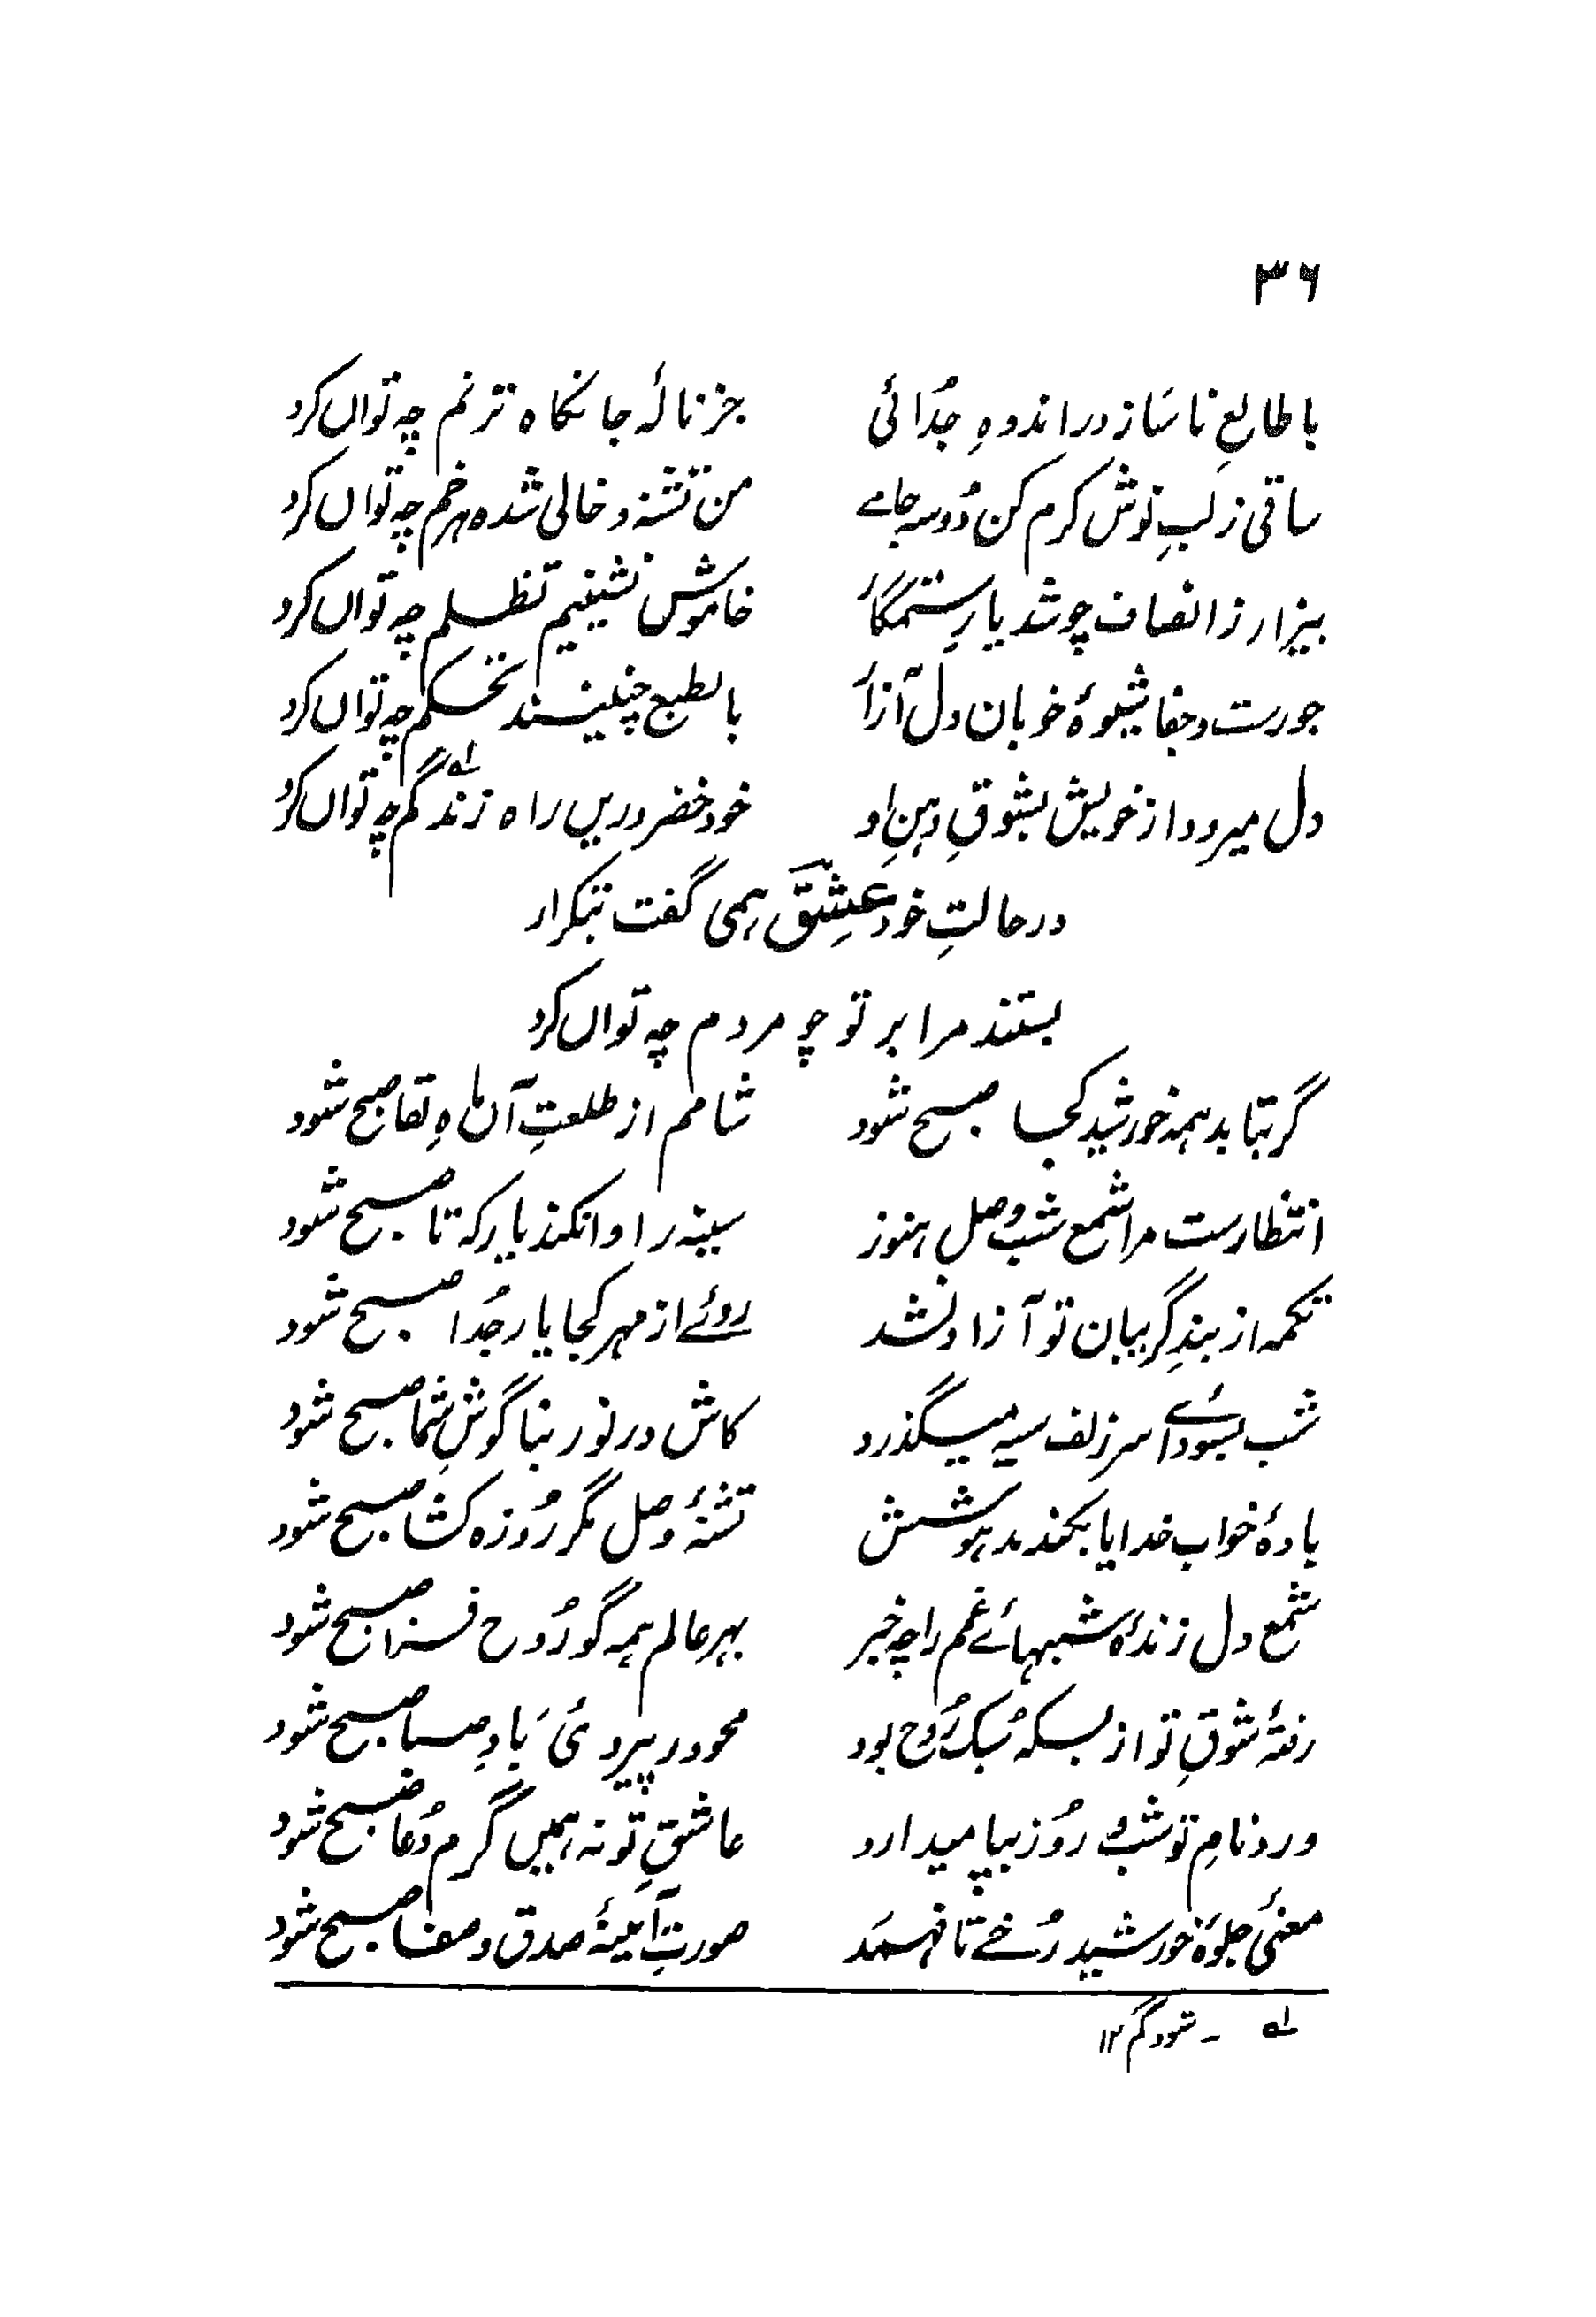 ۳۶
با طالعِ ناساز در اندوہِ جُدائی جز نالۂ جانکاہ ترنم چہ تواں کرد
ساقی ز لبِ نوش کرم کن دُو سہ جامے من تشنہ و خالی شدہ ہر خم چہ تواں کرد
بیزار ز انصاف چو شد یارِ ستمگار خاموش نشینیم تظلم چہ تواں کرد
جورست و جفا شیوۂ خوبان دل آزار بالطبع چنینند تحکم چہ تواں کرد
دل میرود از خویش بشوقِ دہنِ او خود خضر دریں راہ زند گم ۱ے چہ تواں کرد
در حالتِ خود عشِقؔ ہمی گفت بتکرار
بستند مرا بر تو چو مردم چہ تواں کرد
گر بتابد ہمہ خورشید کجا صبح شود شامم از طلعتِ آں ماہِ لقا صبح شود
انتظارست مرا شمع شبِ وصل ہنوز سینہ را وا نکند یار کہ تا صبح شود
تکمہ از بندِ گریبان تو آزاد نشد روئے از مہر کجا یار جُدا صبح شود
شب بسودائے سر زلف سیہ میگذرد کاش در نور بناگوشِ شما صبح شود
بادۂ خواب خدایا بکند مدہوشش تشنۂ وصل مگر رُوزہ کشا صبح شود
شمع دل زندۂ شبہائے غم را چہ خبر بہر عالم ہمہ گو رُوح فزا صبح شود
رفتۂ شوقِ تو از بسکہ سُبک رُوح بود محو در پیروئ بَادِ صبا صبح شود
ورد نامِ تو شب و رُوز بپا میدارد عاشقِ تو نہ ہمیں گرم دُعا صبح شود
معنیٔ جلوۂ خورشید رُخے تا فہمد صورتِ آئینۂ صدق و صفا صبح شود
۱ے ۔ شود گم ۱۲